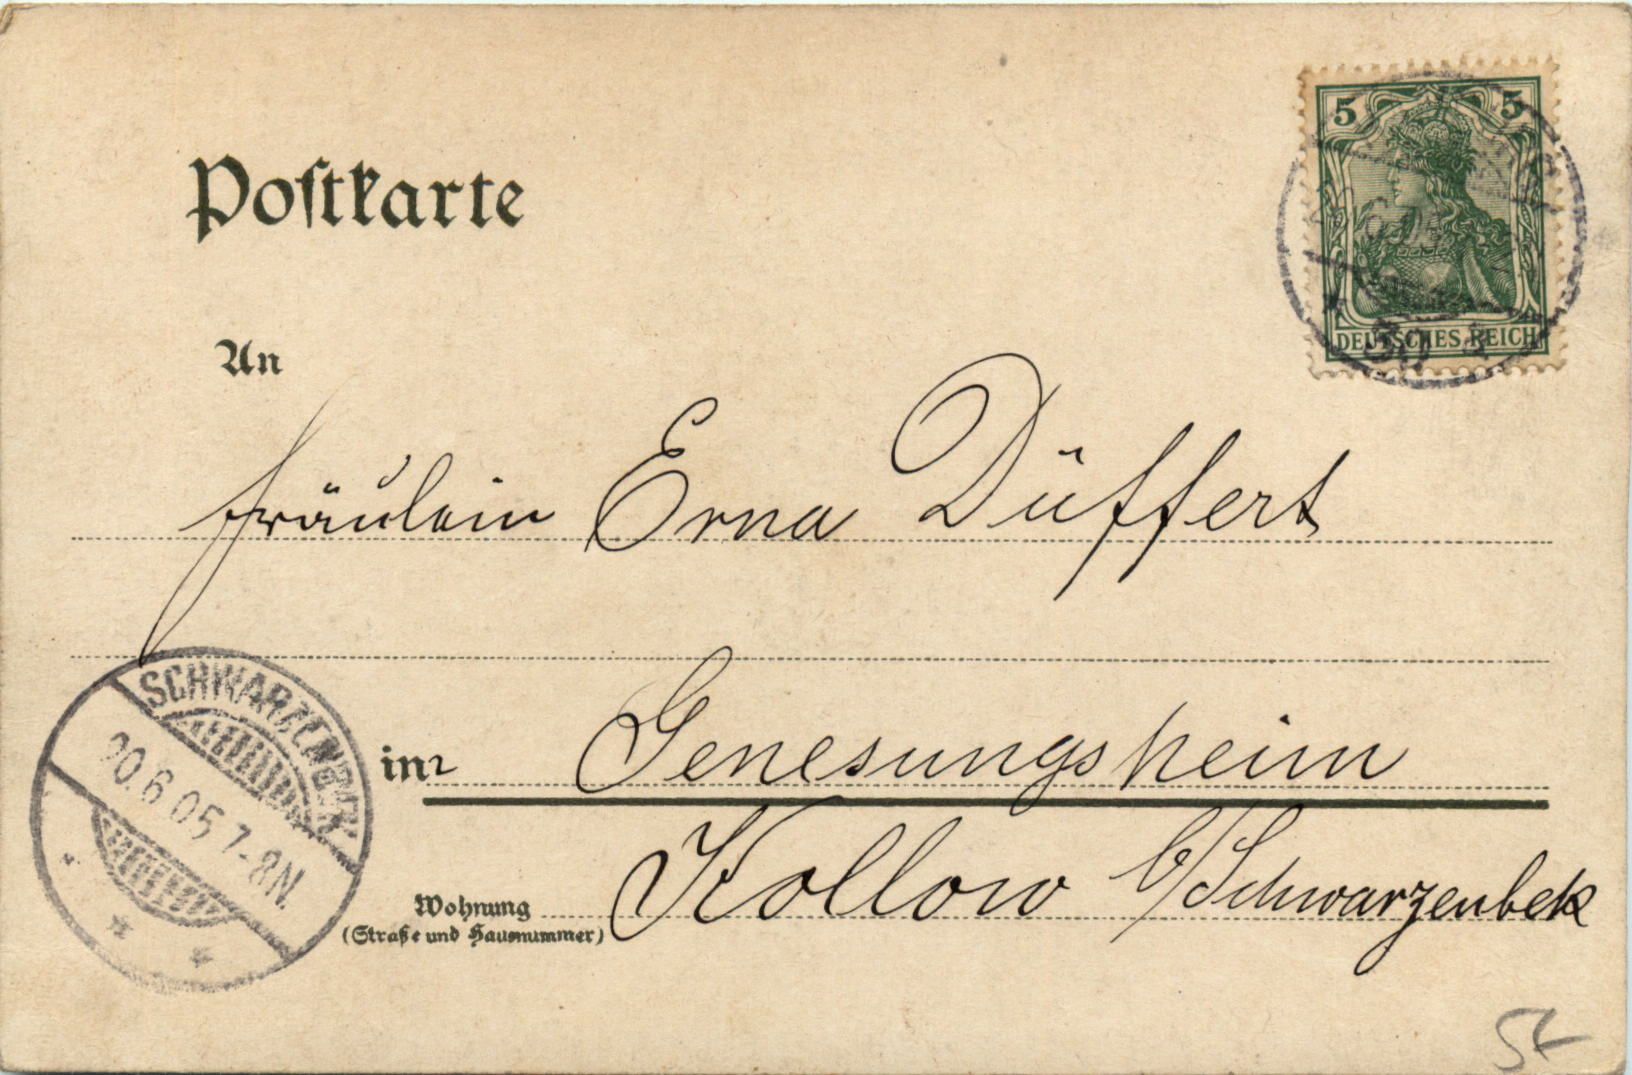 Postkarte
5 5
DEUTSCHES REICH
An
Fräulein Erna Düffert
SCHWARZENBEK
20.6.05 7-8N.
im
Genesungsheim
Kollow b/Schwarzenbek
Wohnung
(Straße und Hausnummer)